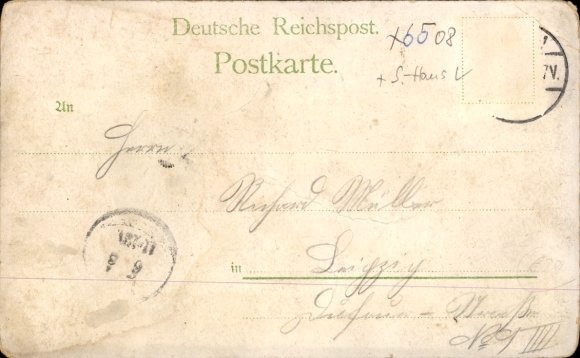 Deutsche Reichspost.
Postkarte.
+6508
+ S-Haus
An
Herrn
Richard Müller
in Leipzig
Straße
No